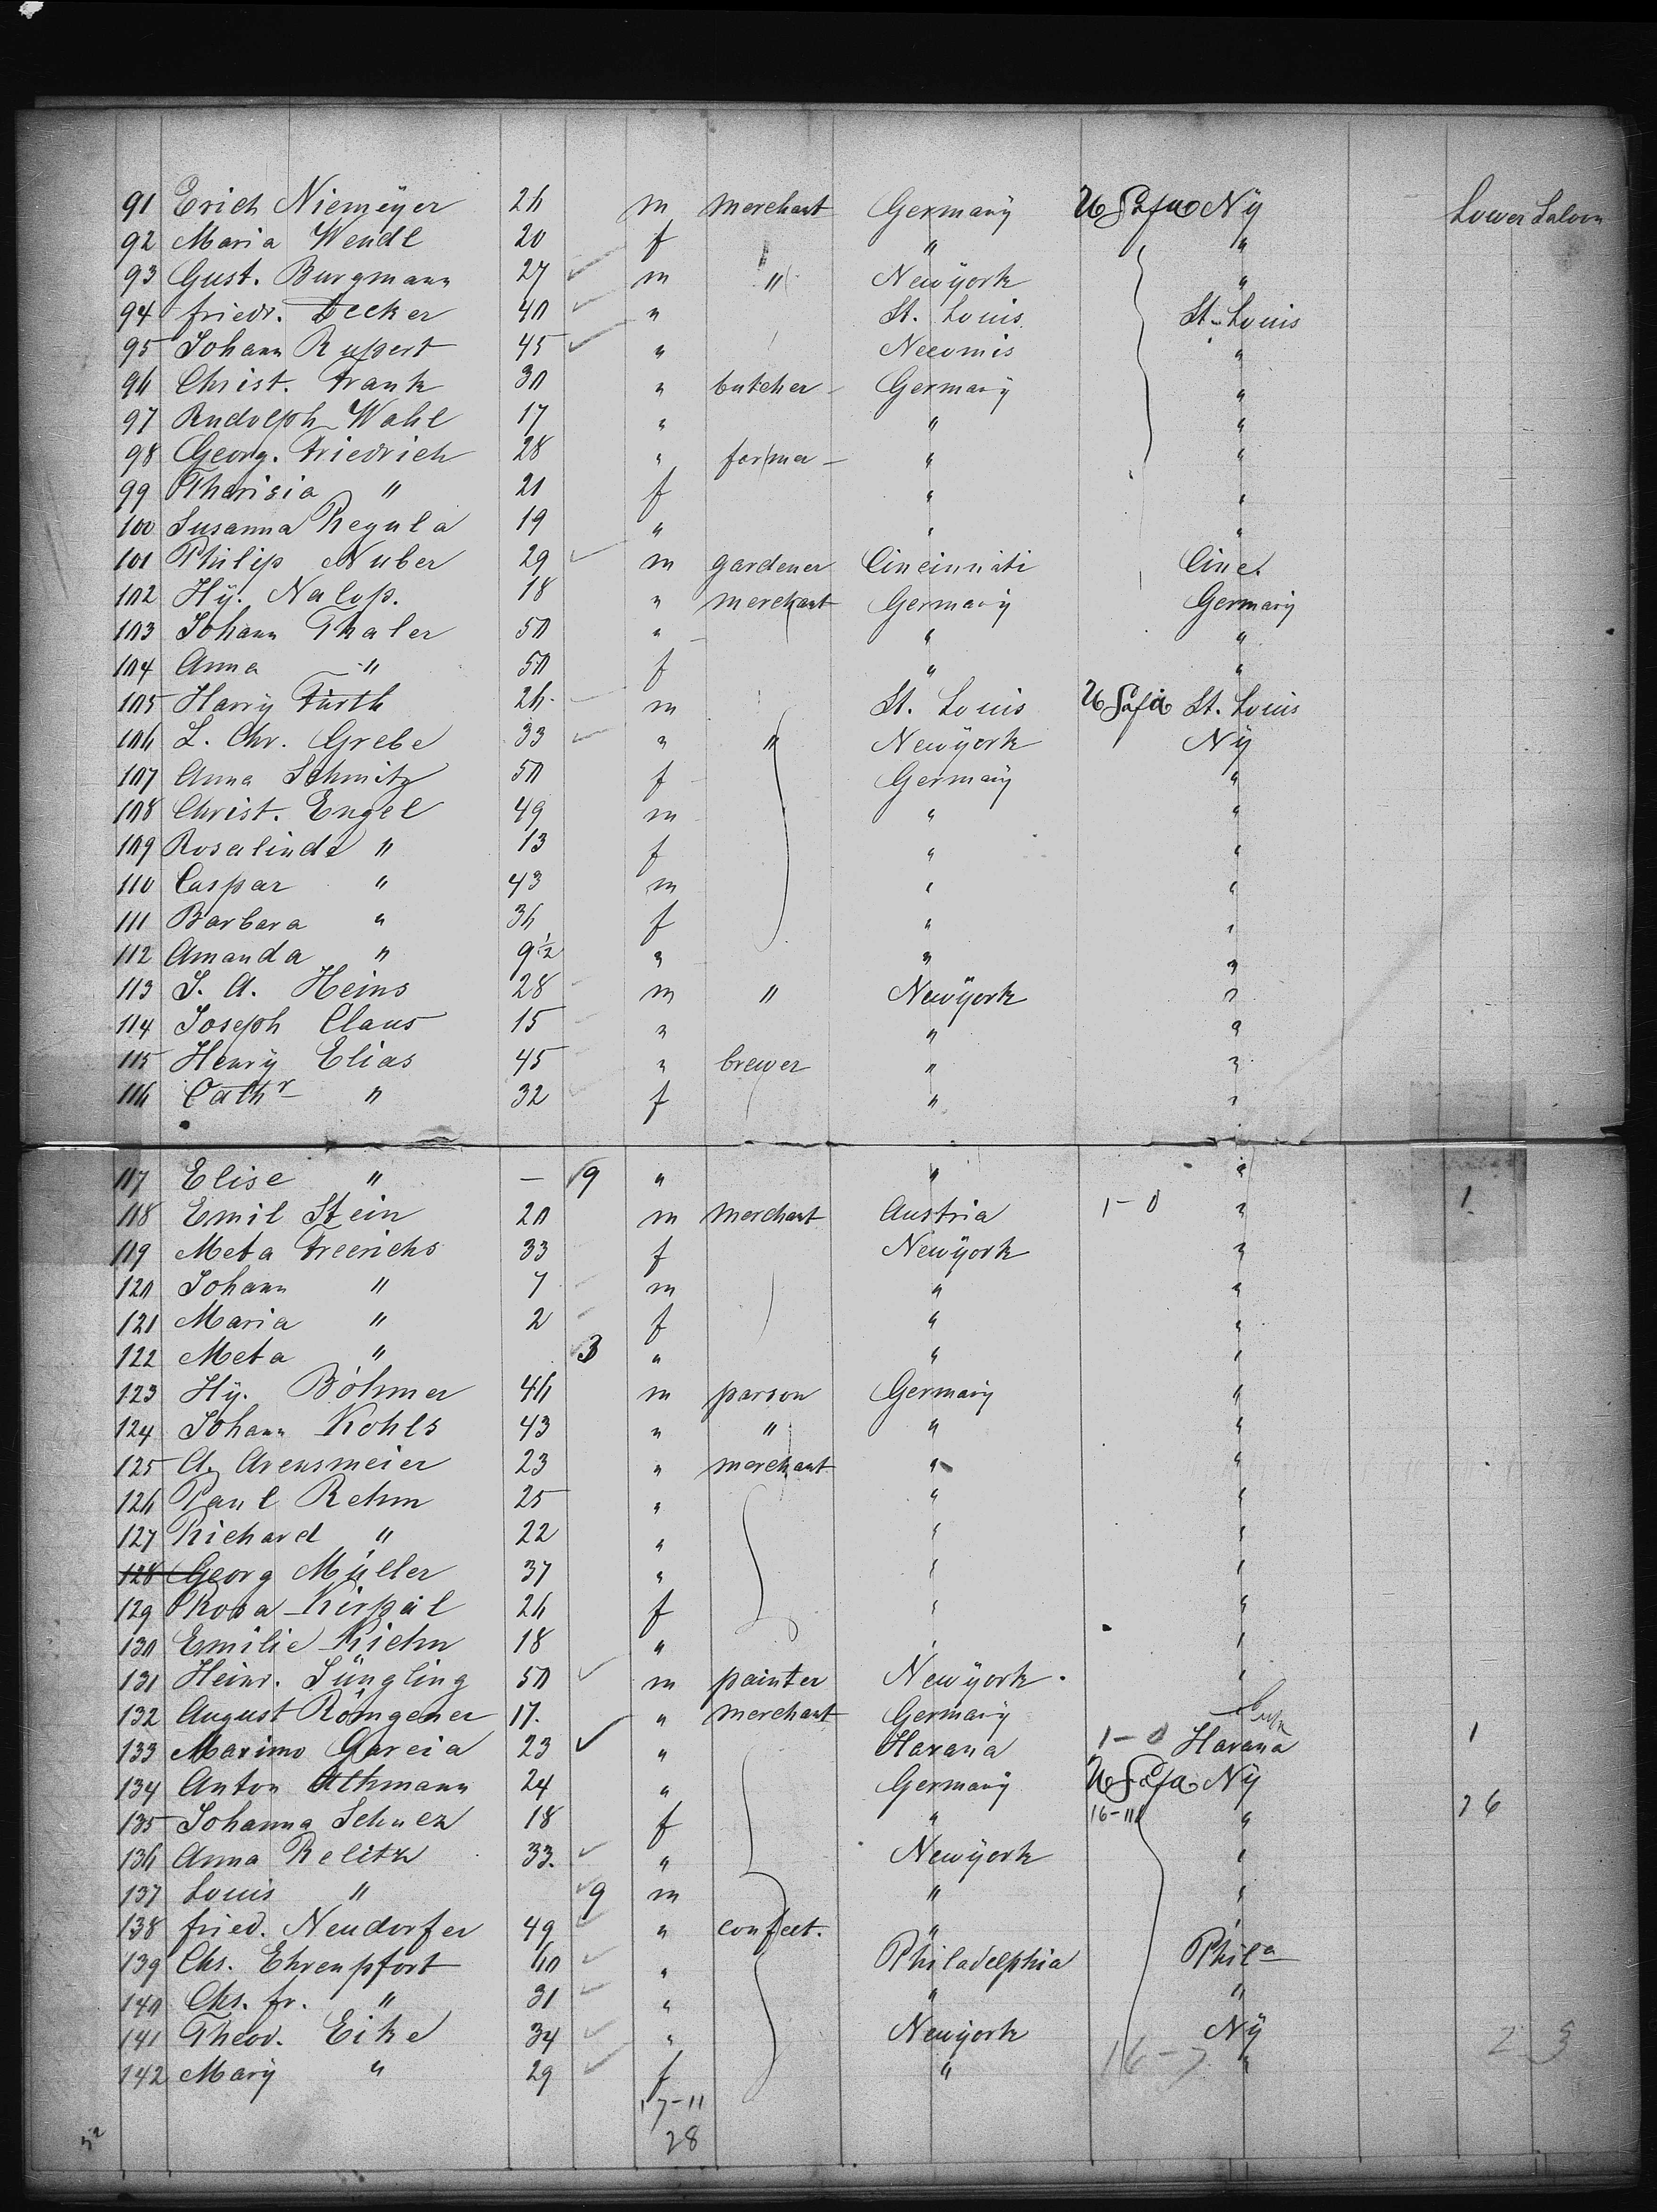 91 Erich Niemeyer 26 m merchant Germany USofA Ny Lower Saloon
92 Maria Wendl 20 f " "
93 Gust. Burgmann 27 m " Newyork "
94 friedr. Decker 40 " St. Louis St. Louis
95 Johann Rupert 45 " Necomis "
96 Christ. Frank 30 " butcher Germany "
97 Rudolph Wahl 17 " " "
98 Georg. Friedrich 28 " farmer " "
99 Therisia " 21 f " "
100 Susanna Regula 19 " " "
101 Philip Nuber 29 m gardener Cincinnati Cinc.
102 Hy. 18 " merchant Germany Germany
103 Johann Thaler 50 " " "
104 Anna " 50 f " "
105 Harry Fürth 26 m St. Louis USofA St. Louis
106 L. Chr. Grebe 33 " " Newyork Ny
107 Anna Schmitz 50 f Germany "
108 Christ. Engel 49 m " "
109 Rosalinde " 13 f " "
110 Caspar " 43 m " "
111 Barbara " 36 f " "
112 Amanda " 9½ " " "
113 J. A. Heins 28 m " Newyork "
114 Joseph Claus 15 " " "
115 Henry Elias 45 " brewer " "
116 Cathr " 32 f " "
117 Elise " – 9 " " "
118 Emil Stein 20 m merchant Austria 1-0 " 1
119 Meta Freerichs 33 f Newyork "
120 Johann " 7 m " "
121 Maria " 2 f " "
122 Meta " 3 " " "
123 Hy. Böhmer 46 m parson Germany "
124 Johann Kohls 43 " " " "
125 A. Arensmeier 23 " merchant " "
126 Paul Rehm 25 " " "
127 Richard " 22 " " "
128 Georg Müller 37 " " "
129 Rosa Kirpal 26 f " "
130 Emilie Riehm 18 " " "
131 Heinr. Jüngling 50 m painter Newyork "
132 August Römgener 17. " merchant Germany
Cuba
133 Maximo Garcia 23 " Havana 1-0 Havana 1
134 Anton Athmann 24 " Germany USofA Ny
135 Johanna 18 f " 16-11 " 26
136 Anna Relitz 33. " Newyork "
137 Louis " 9 m " "
138 fried. Neudorfer 49 " confect. " "
139 Chs. Ehrenpfort 60 " Philadelphia Phila
140 Chs. fr. " 31 " " "
141 Theod. Eike 34 " Newyork Ny
142 Mary " 29 f " 16-7 " 2 3
17-11
28